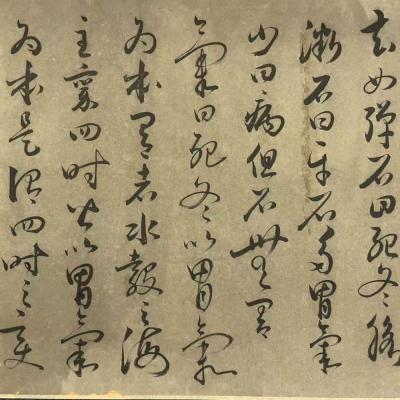 去如彈石曰死冬脈
微石曰平石多胃氣
少曰病但石無胃
氣曰死冬以胃氣
為本胃者水穀之海
主稟四時皆以胃氣
為本是謂四時之變